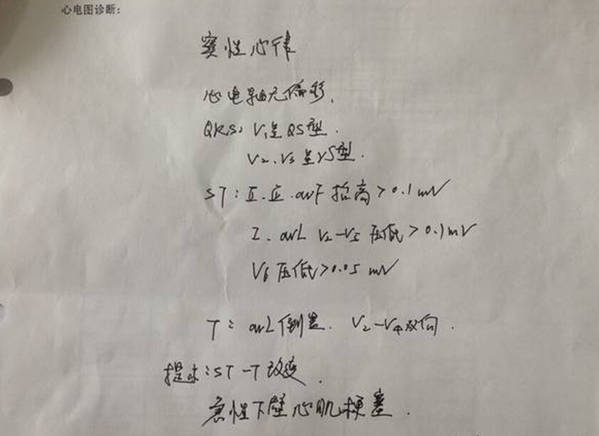 心电图诊断:
窦性心律
心电轴无偏移.
QRS: V₁呈QS型.
V₂.V₃呈rS型.
ST: Ⅱ.Ⅲ.avF抬高>0.1mV
I. avL V₂-V₅压低>0.1mV
V₆压低>0.05mV
T: avL倒置. V₂-V₄双向.
提示:ST-T改变.
急性下壁心肌梗塞.